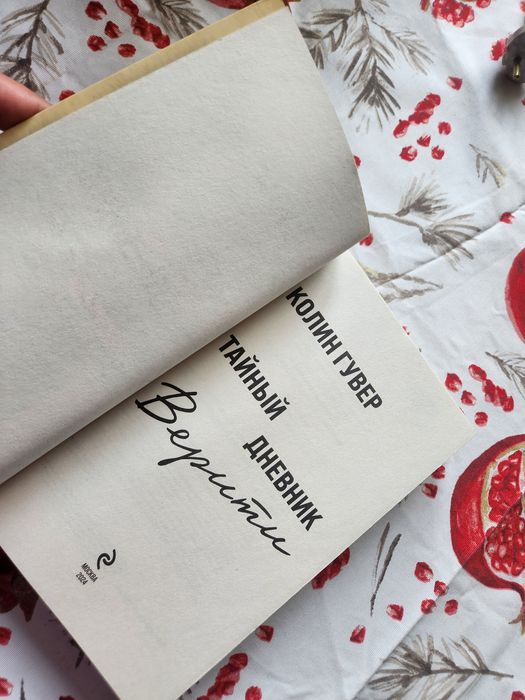 КОЛИН ГУВЕР
ТАЙНЫЙ
ДНЕВНИК
Верити
МОСКВА
2024